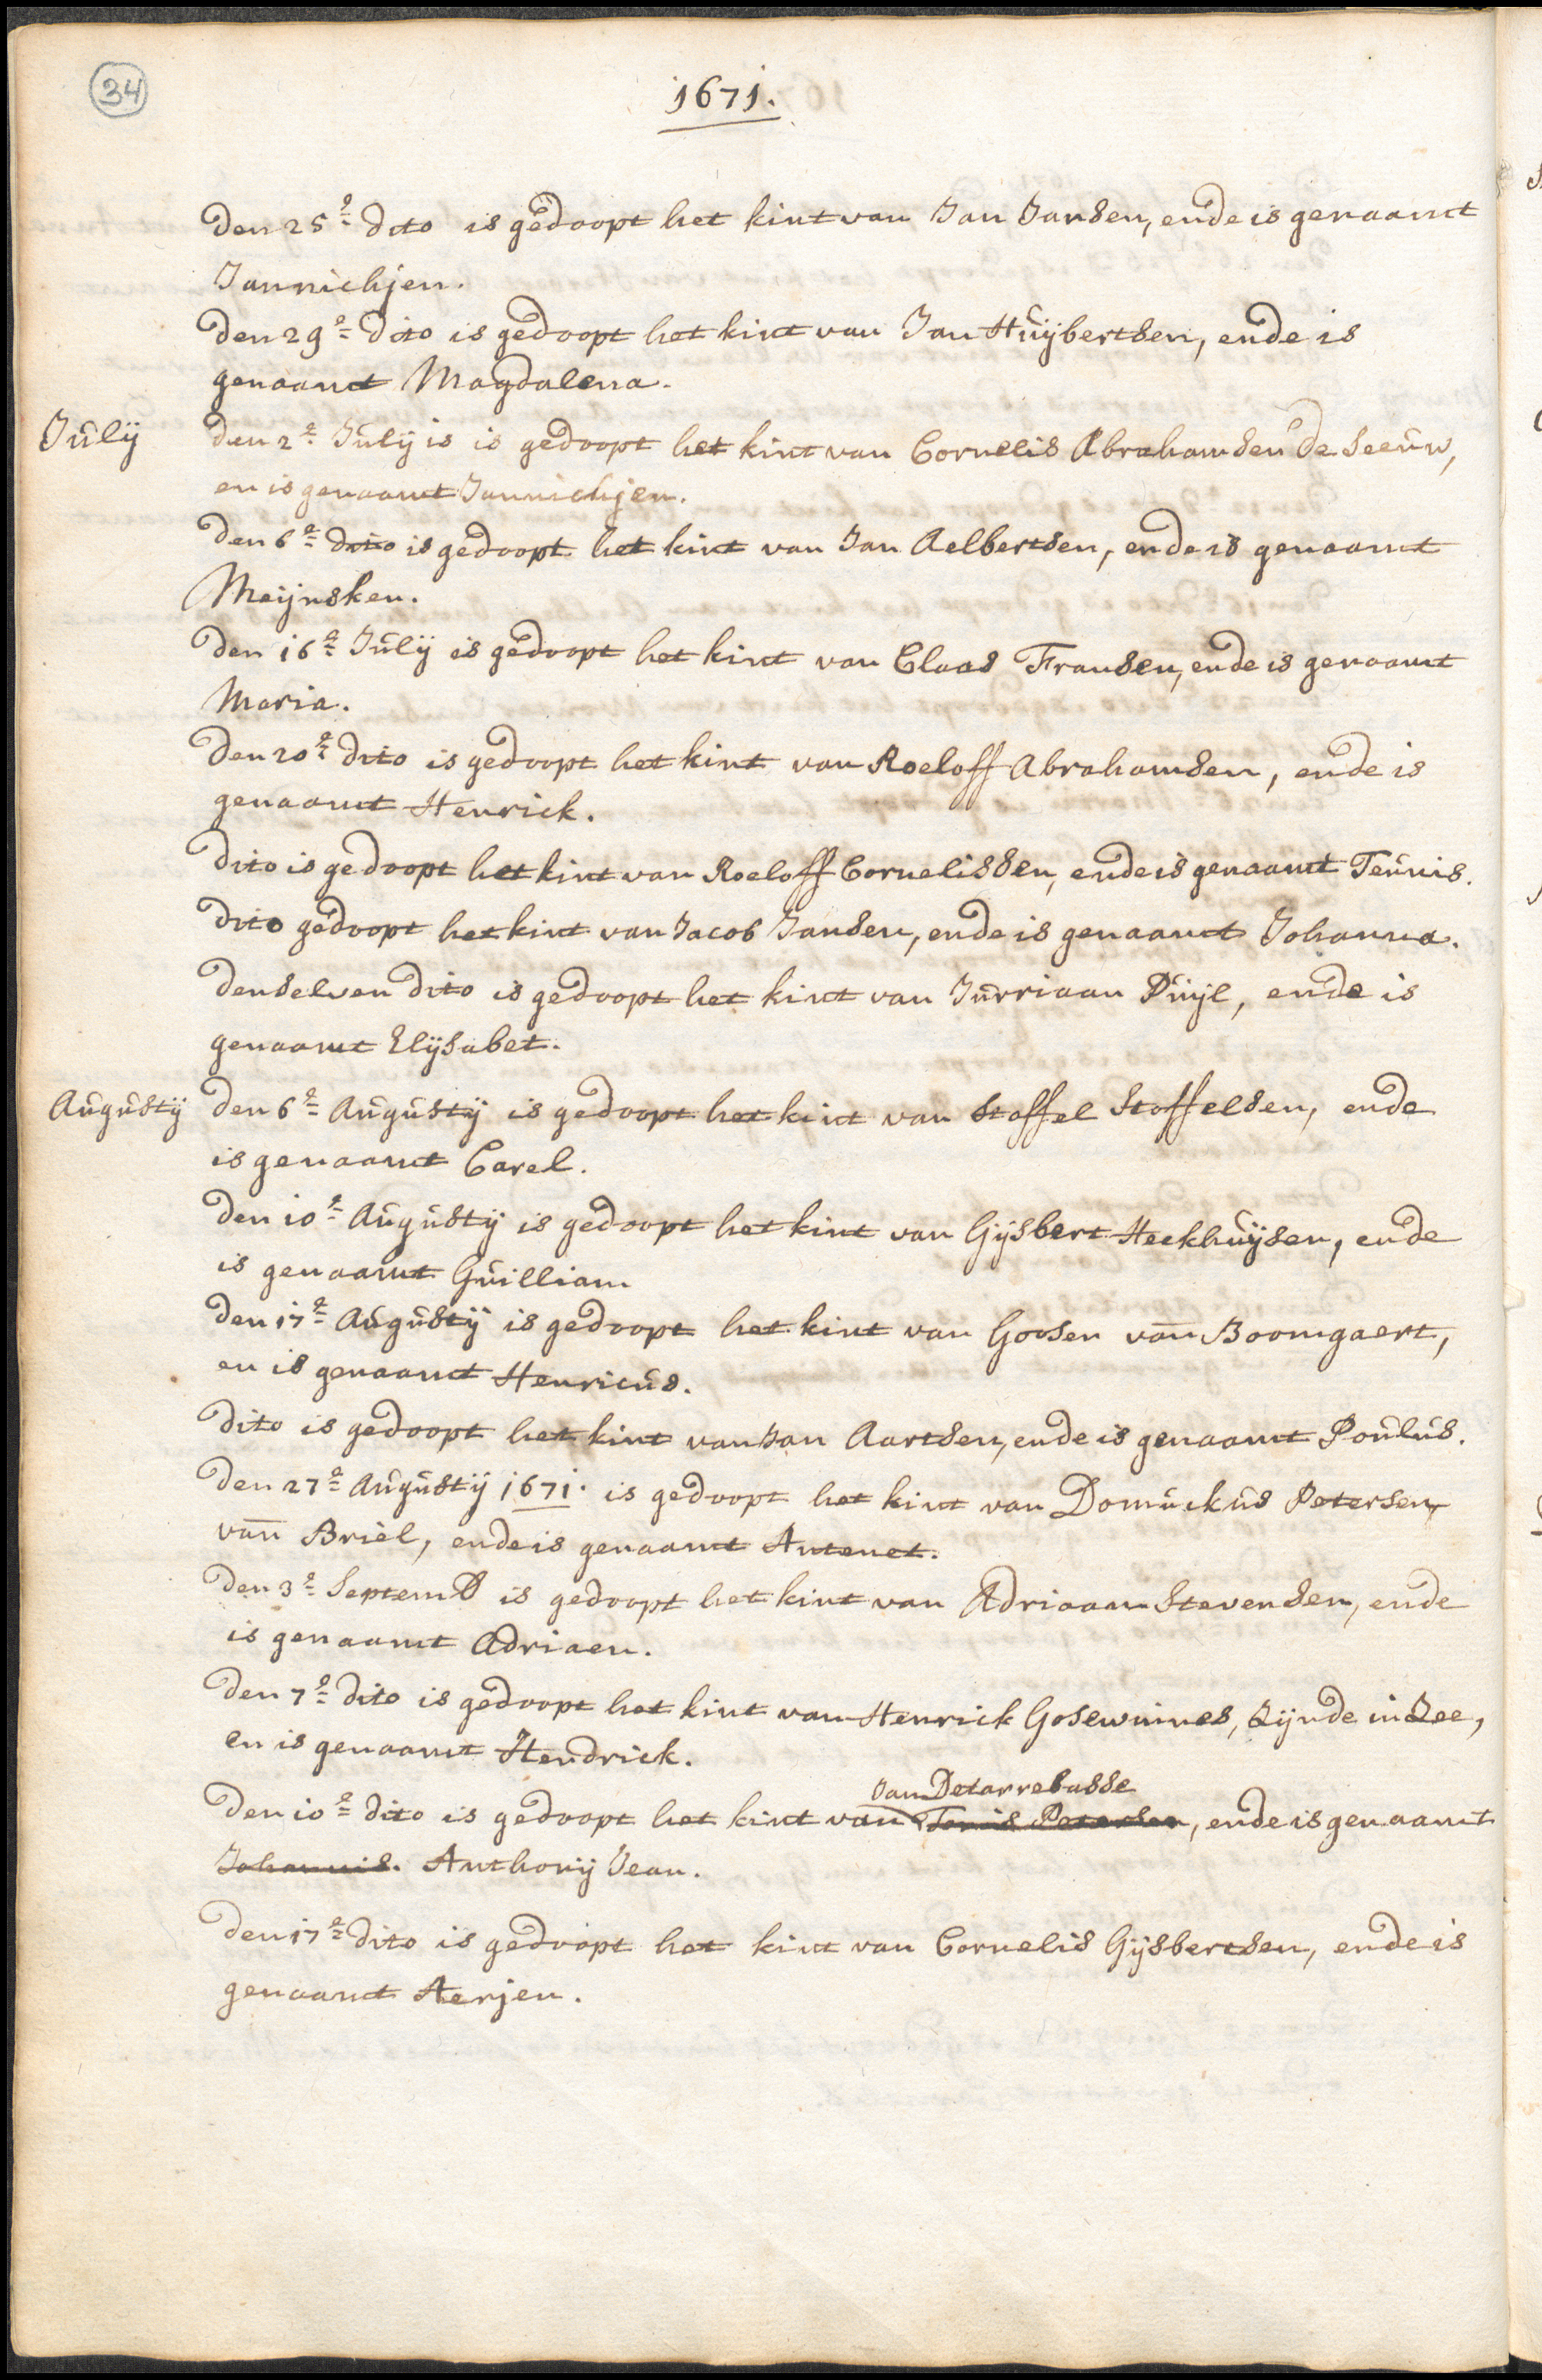 34
1671.
Den 25e dito is gedoopt het kint van Jan Jansen, ende is genaamt
Jannichjen.
Den 29e dito is gedoopt het kint van Jan Huijbertsen, ende is
genaamt Magdalena.
Julij
Den 2e Julij is is gedoopt het kint van Cornelis Abrahamsen de Seeuw,
en is genaamt Jannichjen.
Den 6e dito is gedoopt het kint van Jan Aelbertsen, ende is genaamt
Meijnsken.
Den 16e Julij is gedoopt het kint van Claas Fransen, ende is genaamt
Maria.
Den 20e dito is gedoopt het kint van Roeloff Abrahamsen, ende is
genaamt Henrick.
Dito is gedoopt het kint van Roeloff Cornelissen, ende is genaamt Teunis.
Dito gedoopt het kint van Jacob Jansen, ende is genaamt Johanna.
Denselven dito is gedoopt het kint van Jurriaan Puijl, ende is
genaamt Elijsabet.
Augustij
Den 6e Augustij is gedoopt het kint van Stoffel Stoffelsen, ende
is genaamt Carel.
Den 10e Augustij is gedoopt het kint van Gijsbert Heekhuijsen, ende
is genaamt Guilliam
Den 17e Augustij is gedoopt het kint van Goosen van Boomgaert,
en is genaamt Henricus.
Dito is gedoopt het kint van Jan Aartsen, ende is genaamt Poulus.
Den 27e Augustij 1671. is gedoopt het kint van Domuckus Petersen
van Briel, ende is genaamt Antenet.
Den 3e Septemb is gedoopt het kint van Adriaan Stevensen, ende
is genaamt Adriaen.
Den 7e dito is gedoopt het kint van Henrick Gosewinnes, Zijnde in Zee,
en is genaamt Hendrick.
Jan Detarrebasse
Den 10e dito is gedoopt het kint van Petersen, ende is genaamt
Johannis. Anthonij Jean.
Den 17e dito is gedoopt het kint van Cornelis Gijsbertsen, ende is
genaamt Aerjen.